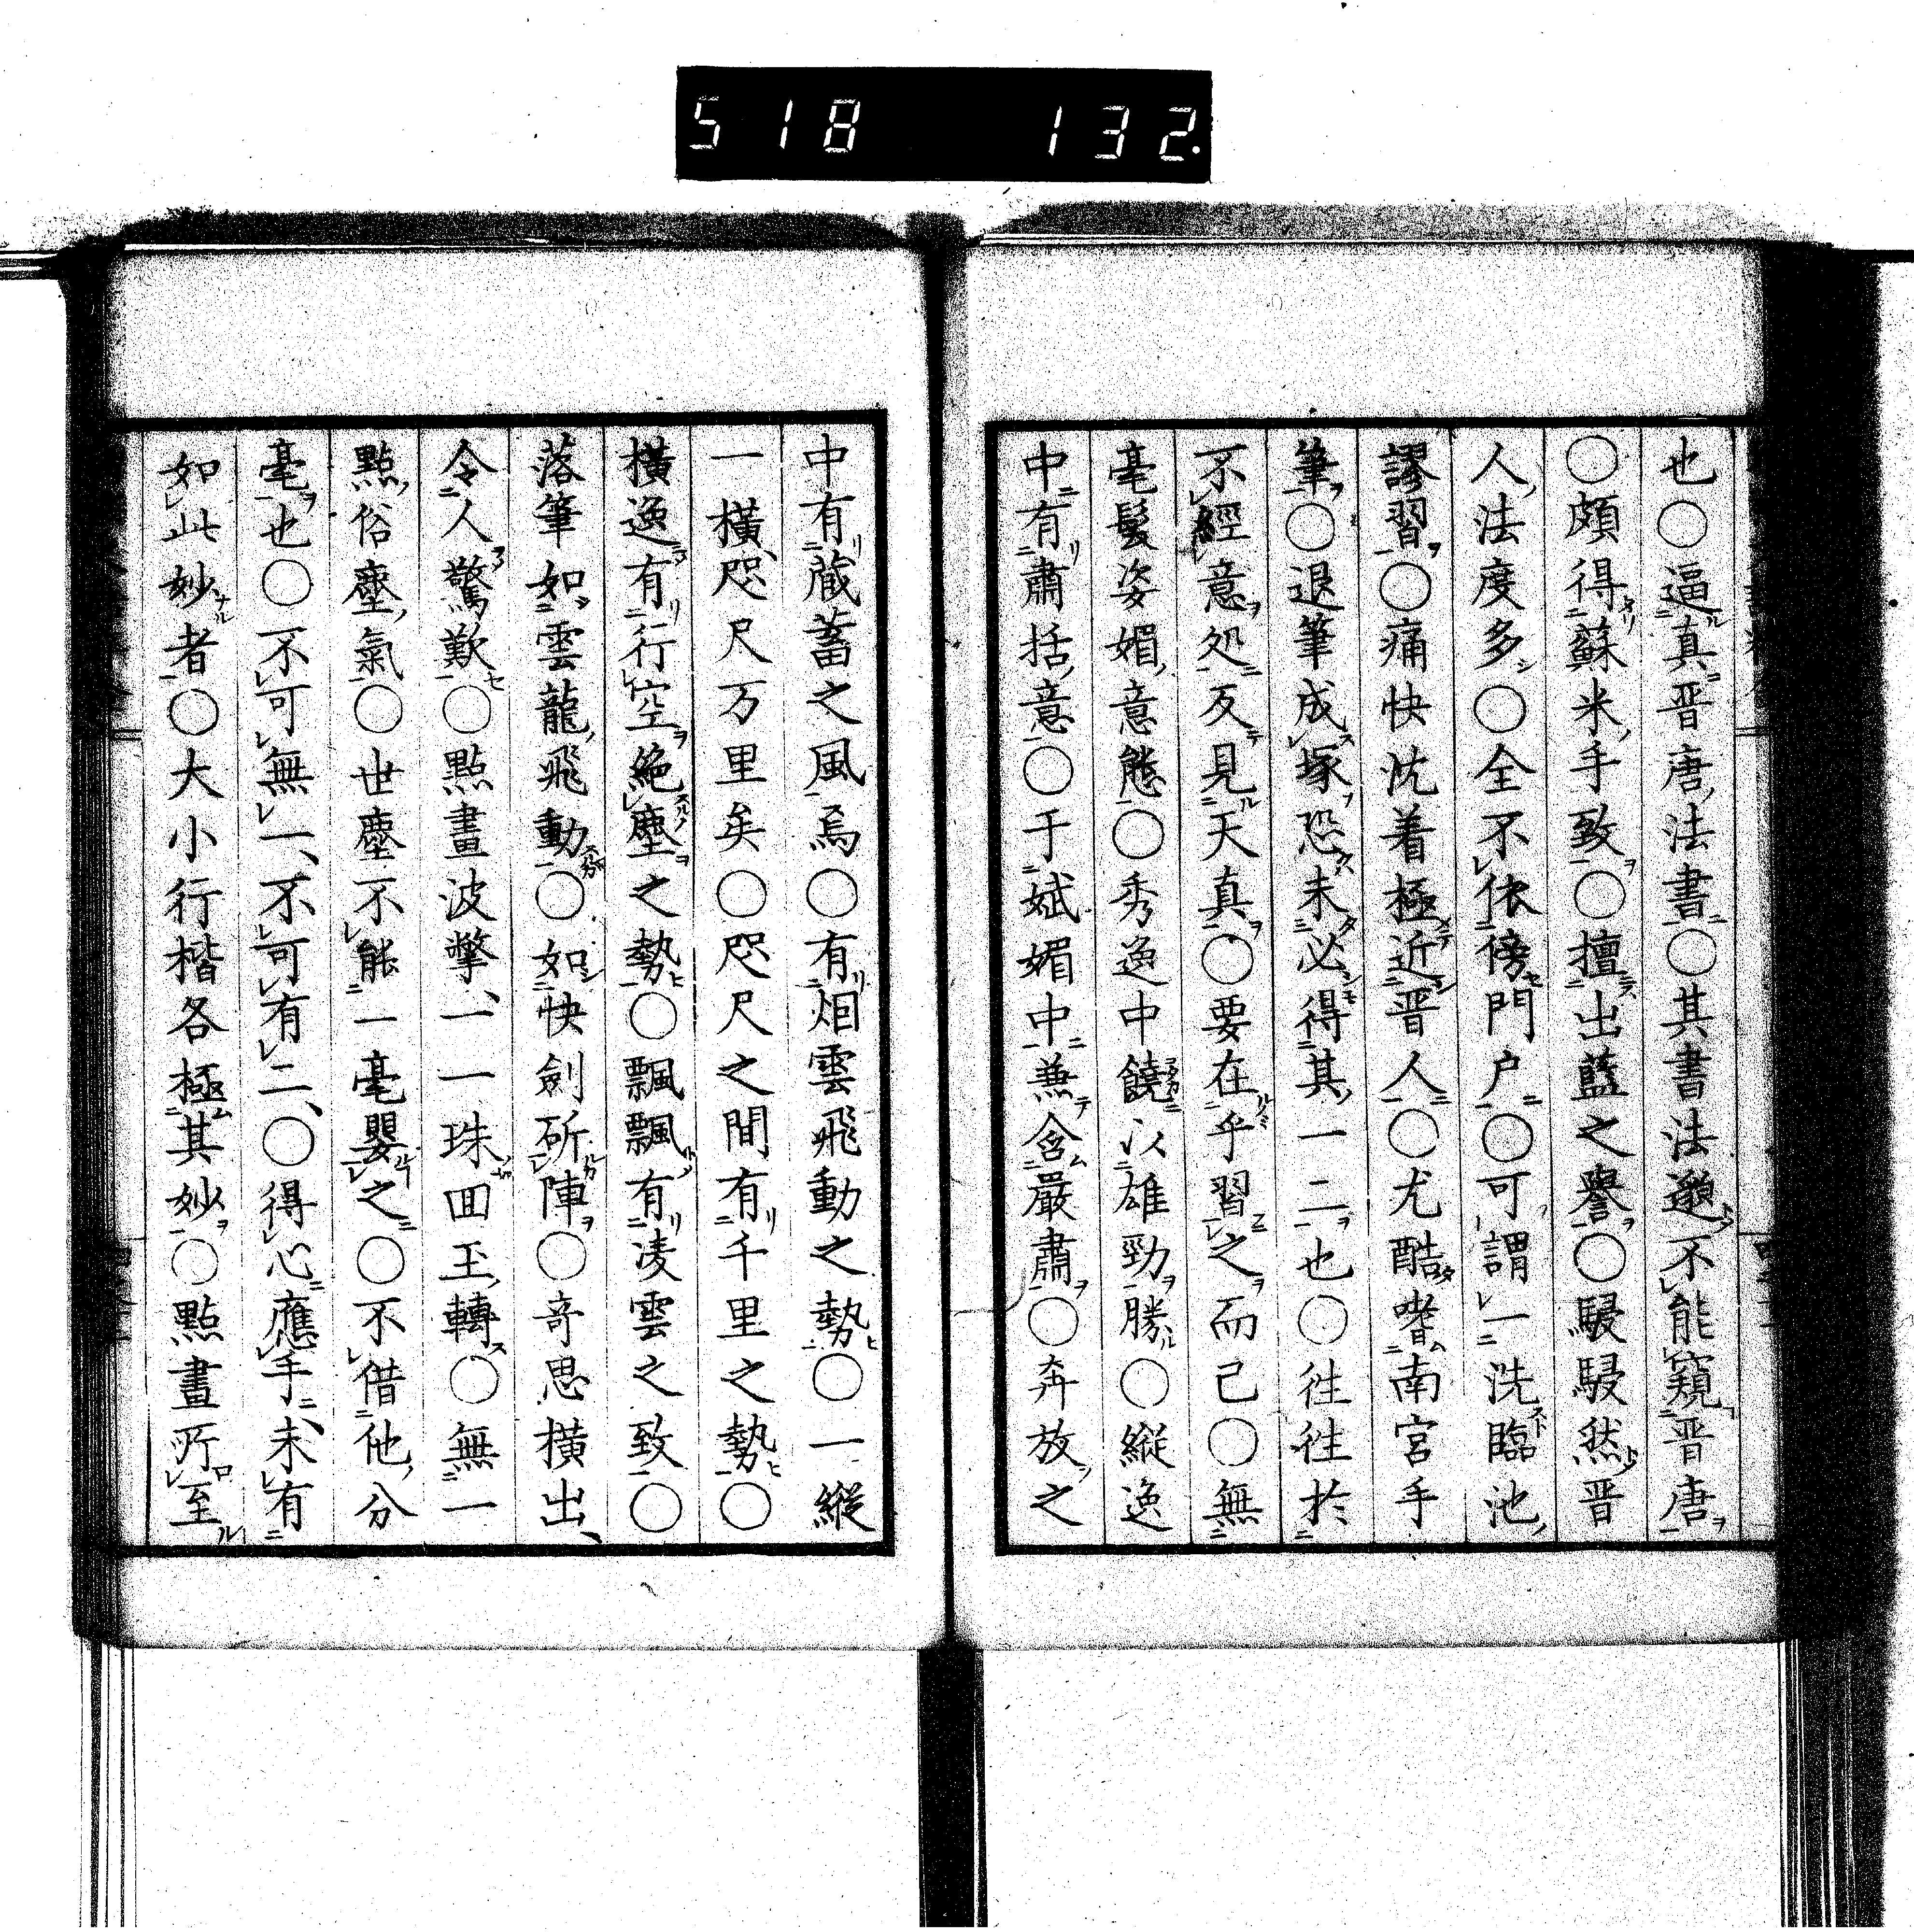 518 132.
也○逼真晋唐法書○其書法邈不能窺晋唐
○頗得蘇米手致○擅出藍之譽○駸駸然晋
人法度多○全不依傍門户○可謂一洗臨池
謬習○痛快沈着極近晋人○尤酷嗜南宮手
筆○退筆成塚恐未必得其一二也○徃徃於
不經意処反見天真○要在乎習之而己○無
毫髮姿媚意態○秀逸中饒以雄勁勝○縱逸
中有肅括意○于斌媚中兼含嚴肅○奔放之
中有蔵蓄之風焉○有烟雲飛動之勢○一縱
一橫咫尺万里矣○咫尺之間有千里之勢○
橫逸有行空絶塵之勢○飄飄有凌雲之致○
落筆如雲龍飛動○如快劍斫陣○奇思橫出
令人驚歎○點畫波撆一一珠囬玉轉○無一
點俗塵氣○世塵不能一毫嬰之○不借他分
毫也○不可無一不可有二○得心應手未有
如此妙者○大小行楷各極其妙○點畫所至